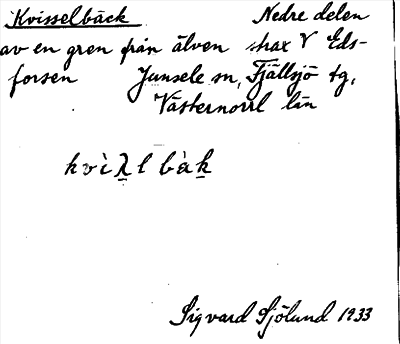 Kvisselbäck Nedre delen
av en gren från älven strax V Eds-
forsen Junsele sn, Fjällsjö tg,
Västernorrl län
Sigvard Sjölund 1933